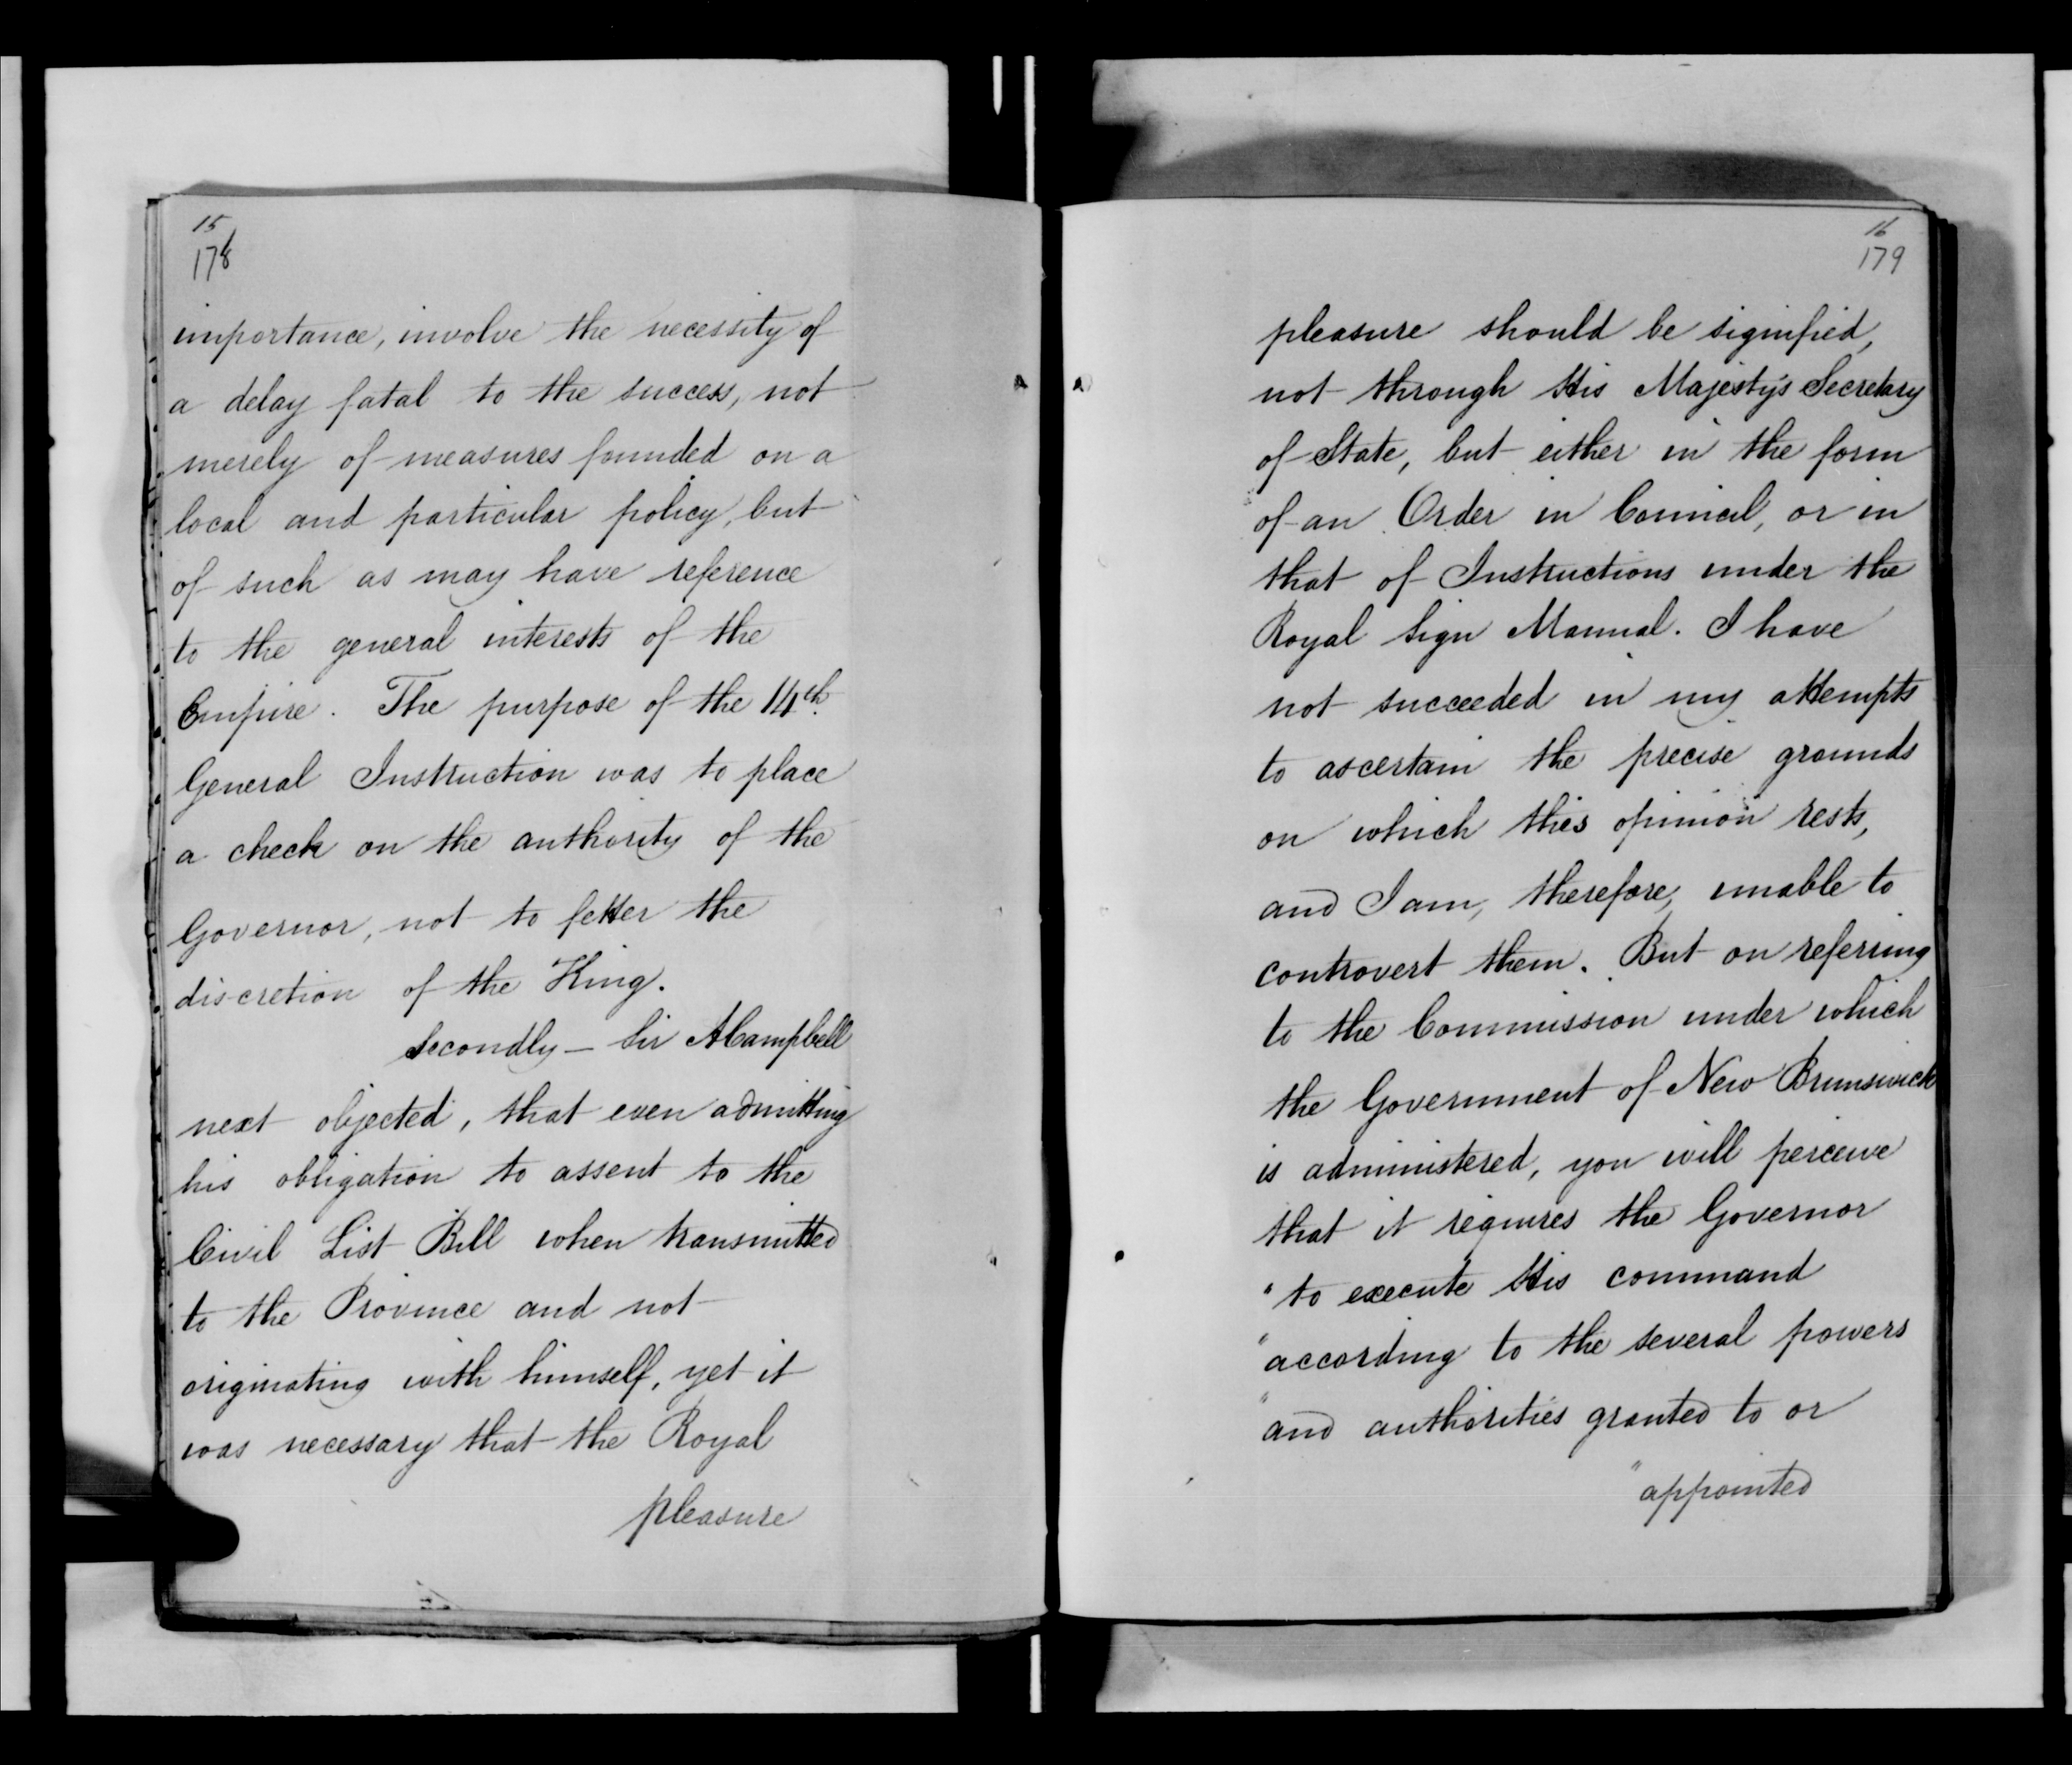 15
178
importance, involve the necessity of
a delay fatal to the success, not
merely of measures founded on a
local and particular policy, but
of such as may have reference
to the general interests of the
Empire. The purpose of the 14th
General Instruction was to place
a check on the authority of the
Governor, not to fetter the
discretion of the King.
Secondly – Sir A Campbell
next objected, that even admitting
his obligation to assent to the
Civil List Bill when transmitted
to the Province and not
originating with himself, yet it
was necessary that the Royal
pleasure
16
179
pleasure should be signified,
not through His Majesty's Secretary
of State, but either in the form
of an Order in Council, or in
that of Instructions under the
Royal Sign Manual. I have
not succeeded in my attempts
to ascertain the precise grounds
on which this opinion rests,
and I am, therefore, unable to
controvert them. But on referring
to the Commission under which
the Government of New Brunswick
is administered, you will perceive
that it requires the Governor
"to execute His command
"according to the several powers
"and authorities granted to or
"appointed